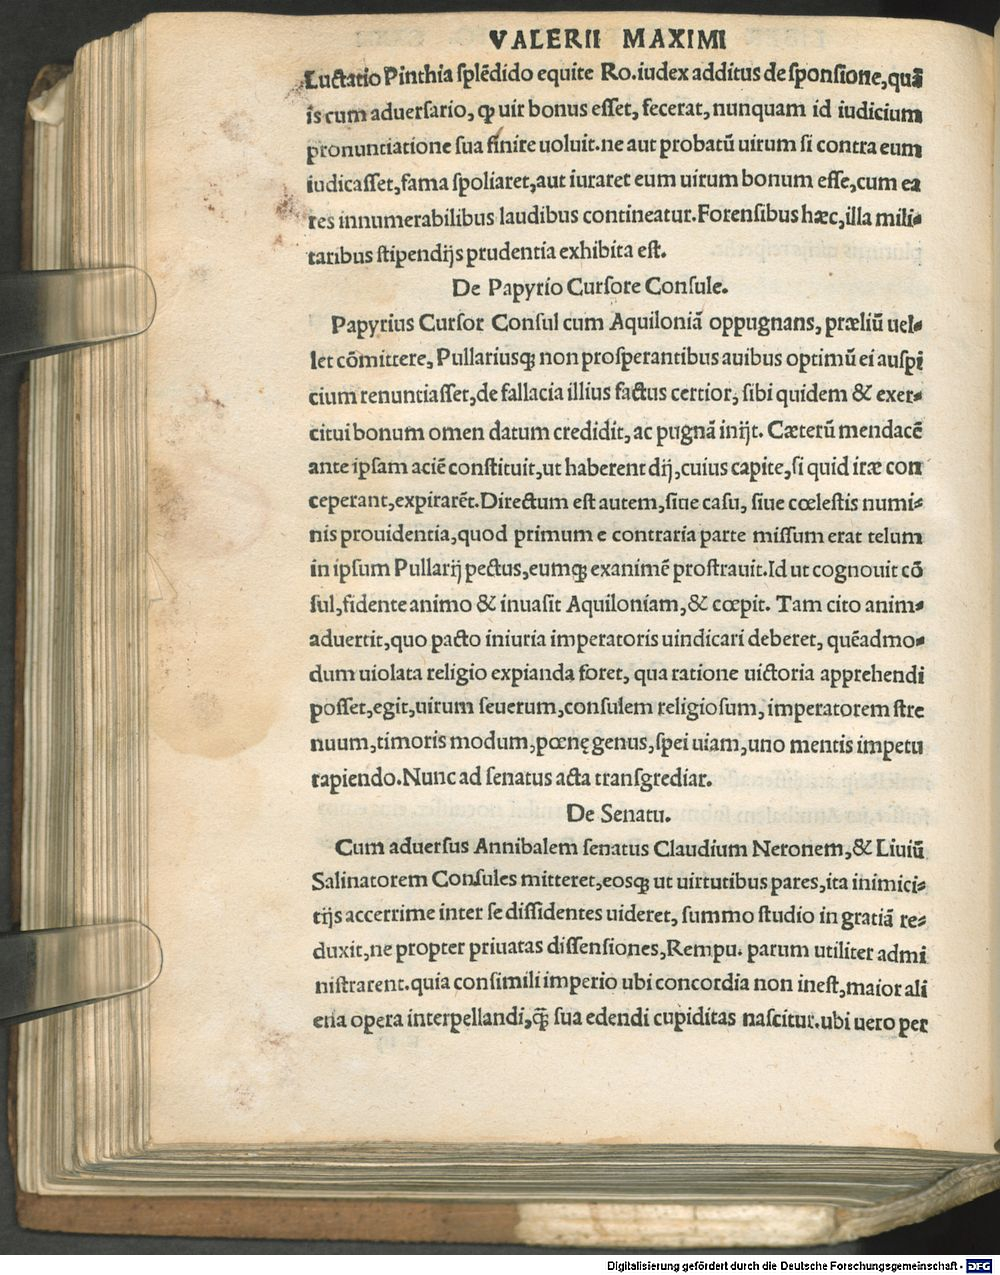 VALERII MAXIMI
Luctatio Pinthia splēdido equite Ro. iudex additus de sponsione, quā
is cum aduersario, ꝙ uir bonus esset, fecerat, nunquam id iudicium
pronuntiatione sua finire uoluit. ne aut probatū uirum si contra eum
iudicasset, fama spoliaret, aut iuraret eum uirum bonum esse, cum ea
res innumerabilibus laudibus contineatur. Forensibus hæc, illa mili-
taribus stipendijs prudentia exhibita est.
De Papyrio Cursore Consule.
Papyrius Cursor Consul cum Aquiloniā oppugnans, præliū uel-
let cōmittere, Pullariusq; non prosperantibus auibus optimū ei auspi
cium renuntiasset, de fallacia illius factus certior, sibi quidem & exer-
citui bonum omen datum credidit, ac pugnā inijt. Cæterū mendacē
ante ipsam aciē constituit, ut haberent dij, cuius capite, si quid iræ con
ceperant, expirarēt. Directum est autem, siue casu, siue cœlestis numi-
nis prouidentia, quod primum e contraria parte missum erat telum
in ipsum Pullarij pectus, eumq; exanimē prostrauit. Id ut cognouit cō
sul, fidente animo & inuasit Aquiloniam, & cœpit. Tam cito anim-
aduertit, quo pacto iniuria imperatoris uindicari deberet, quēadmo-
dum uiolata religio expianda foret, qua ratione uictoria apprehendi
posset, egit, uirum seuerum, consulem religiosum, imperatorem stre
nuum, timoris modum, pœnę genus, spei uiam, uno mentis impetu
rapiendo. Nunc ad senatus acta transgrediar.
De Senatu.
Cum aduersus Annibalem senatus Claudium Neronem, & Liuiū
Salinatorem Consules mitteret, eosq; ut uirtutibus pares, ita inimici-
tijs accerrime inter se dissidentes uideret, summo studio in gratiā re-
duxit, ne propter priuatas dissensiones, Rempu. parum utiliter admi
nistrarent. quia consimili imperio ubi concordia non inest, maior ali
ena opera interpellandi, q̄ sua edendi cupiditas nascitur. ubi uero per
Digitalisierung gefördert durch die Deutsche Forschungsgemeinschaft - DFG